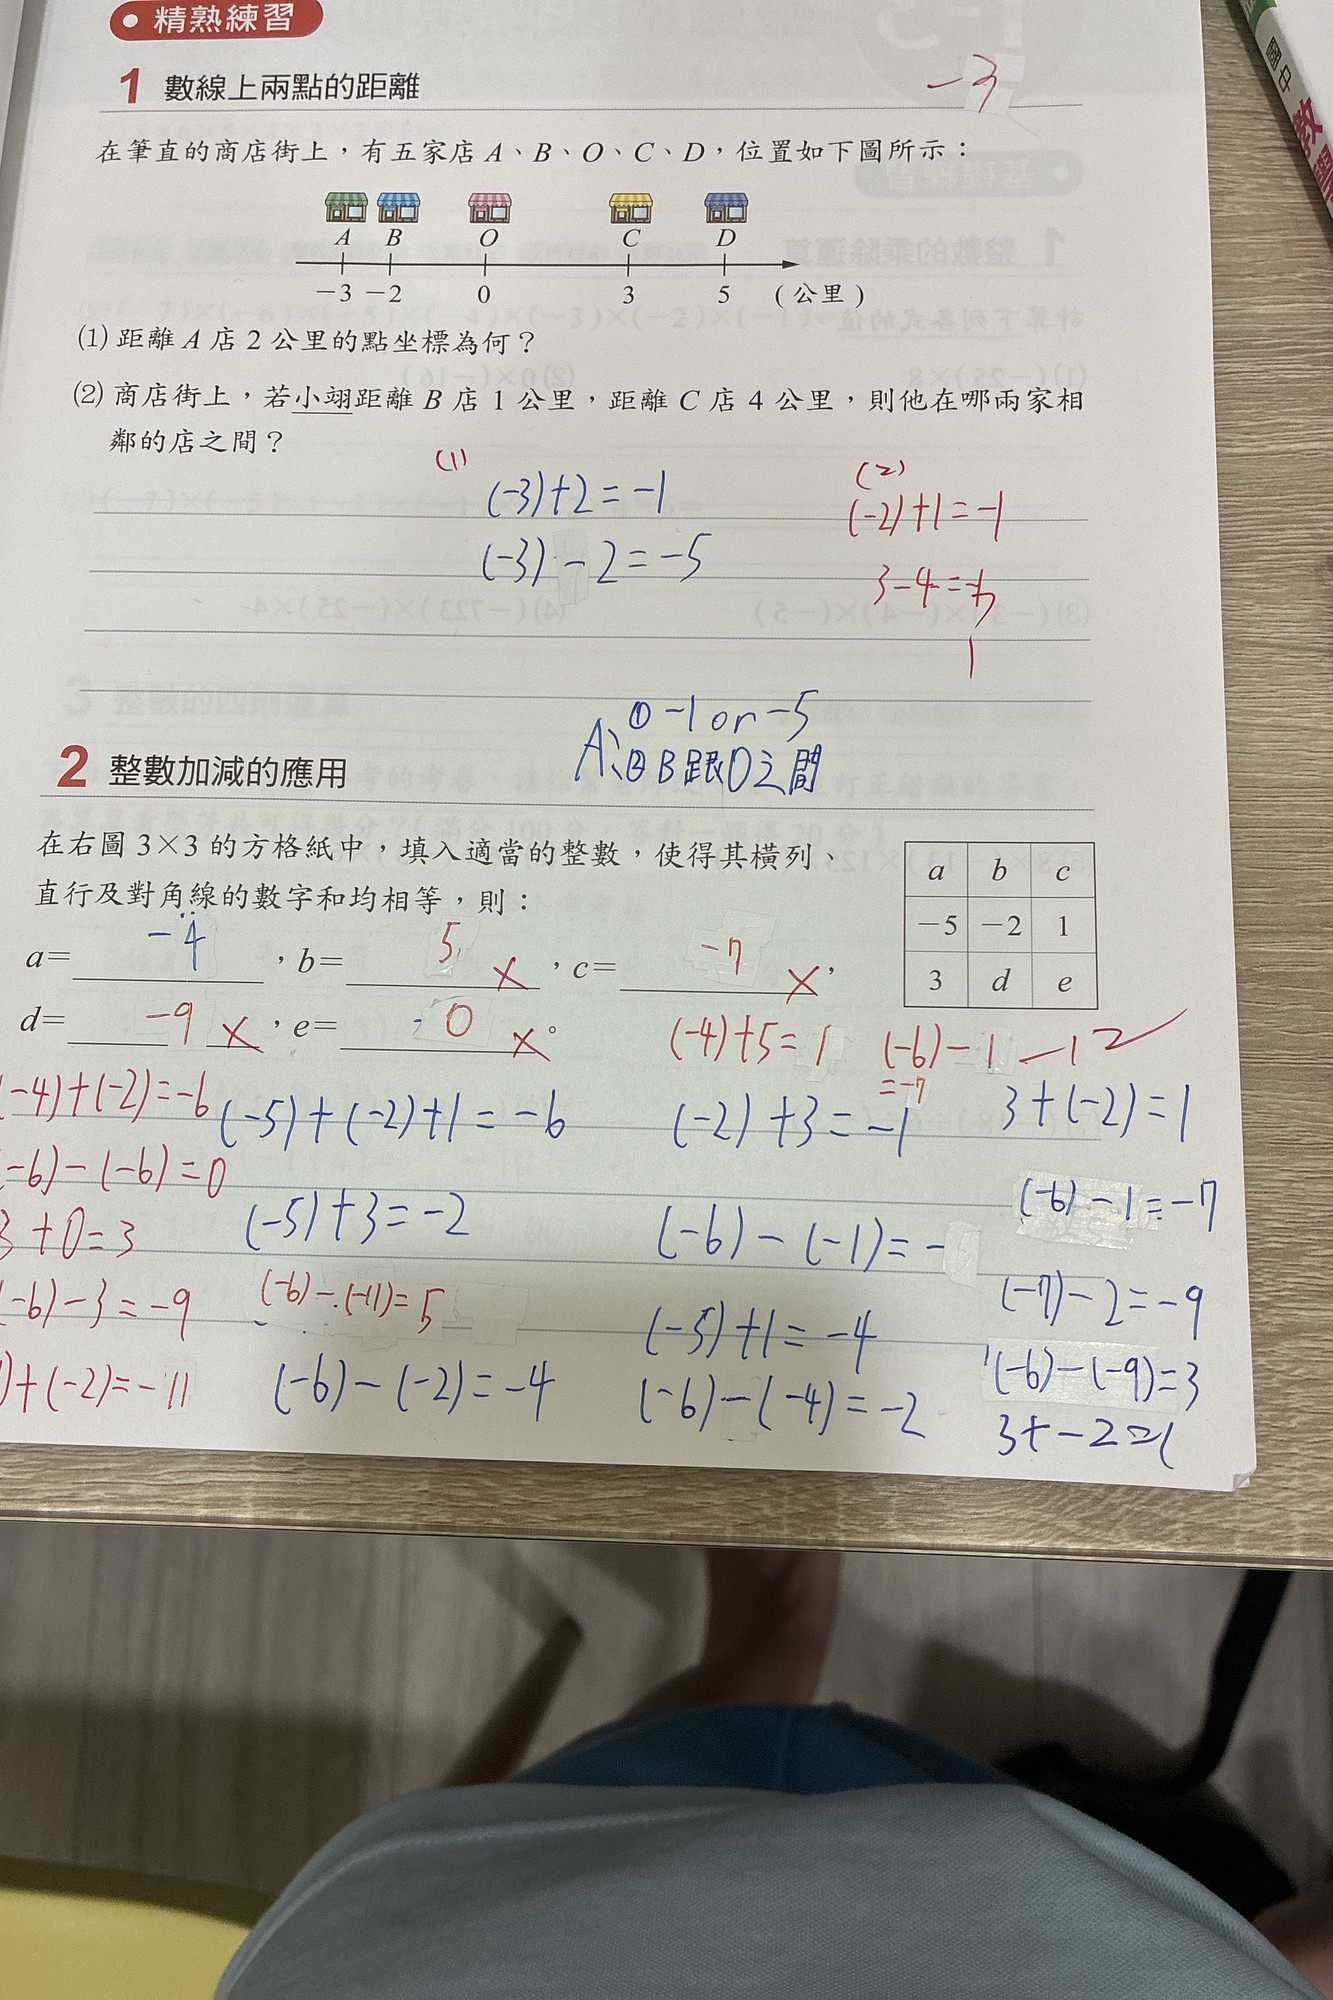 精熟練習
1 數線上兩點的距離
-3
在筆直的商店街上，有五家店 A、B、O、C、D，位置如下圖所示：
A B O C D
-3 -2 0 3 5 (公里)
⑴ 距離 A 店 2 公里的點坐標為何？
⑵ 商店街上，若小翊距離 B 店 1 公里，距離 C 店 4 公里，則他在哪兩家相
鄰的店之間？
(1)
(-3)+2=-1
(-3)-2=-5
(2)
(-2)+1=-1
3-4=
1
A: ① -1 or -5
② B跟O之間
2 整數加減的應用
在右圖 3×3 的方格紙中，填入適當的整數，使得其橫列、
直行及對角線的數字和均相等，則：
a b c
-5 -2 1
3 d e
a= -4 ，b= 5 ×，c= -7 ×，
d= -9 ×，e= 0 ×。
(-4)+5=1
(-6)-1
=-7
-12
-4)+(-2)=-6
-6)-(-6)=0
3+0=3
-6)-3=-9
)+(-2)=-11
(-5)+(-2)+1=-6
(-5)+3=-2
(-6)-(-11)=5
(-6)-(-2)=-4
(-2)+3=-1
(-6)-(-1)=-
(-5)+1=-4
(-6)-(-4)=-2
3+(-2)=1
(-6)-1=-7
(-7)-2=-9
(-6)-(-9)=3
3+-2=1
國中